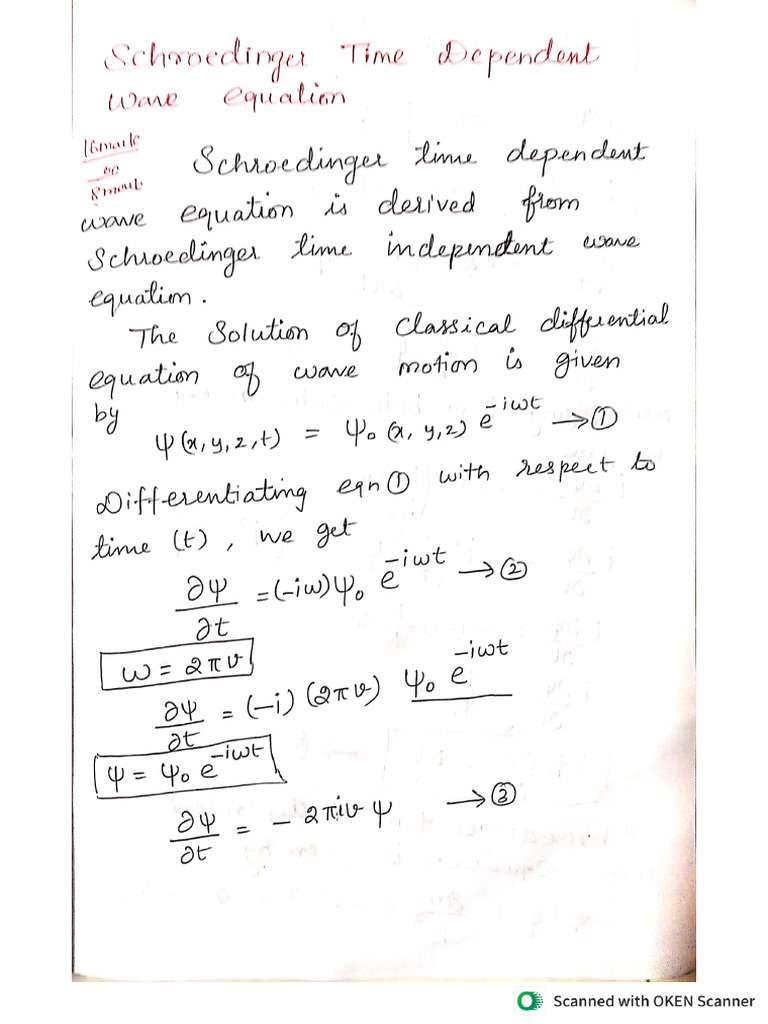 Schroedinger Time Dependent
wave equation
16mark
or
8mark
Schroedinger time dependent
wave equation is derived from
Schroedinger time independent wave
equation.
The Solution of Classical differential
equation of wave motion is given
by
ψ(x,y,z,t) = ψ₀(x,y,z) e^{-iωt} → ①
Differentiating eqn ① with respect to
time (t), we get
∂ψ/∂t = (-iω)ψ₀ e^{-iωt} → ②
ω = 2πν
∂ψ/∂t = (-i) (2πν) ψ₀ e^{-iωt}
ψ = ψ₀ e^{-iωt}
∂ψ/∂t = - 2πiν ψ → ③
Scanned with OKEN Scanner